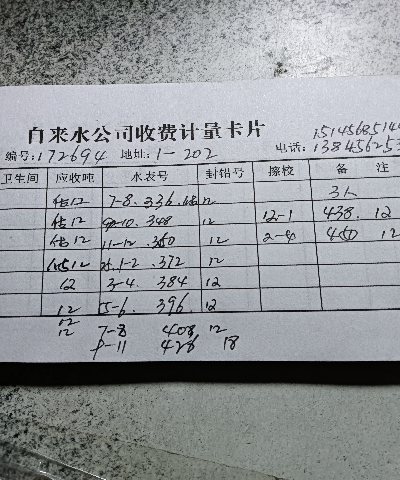 自来水公司收费计量卡片
编号:172694 地址:1-202 电话:
卫生间 应收吨 水表号 封铅号 擦校 备 注
估12 7-8. 336. 12 3人
估12 9-10. 348 12 12-1 438. 12
估12 11-12 .360 12 2-4 450 12
估12 1-2 .372 12
12 3-4. 384 12
12 5-6. 396. 12
12
12 7-8 408 12
9-11 426 18